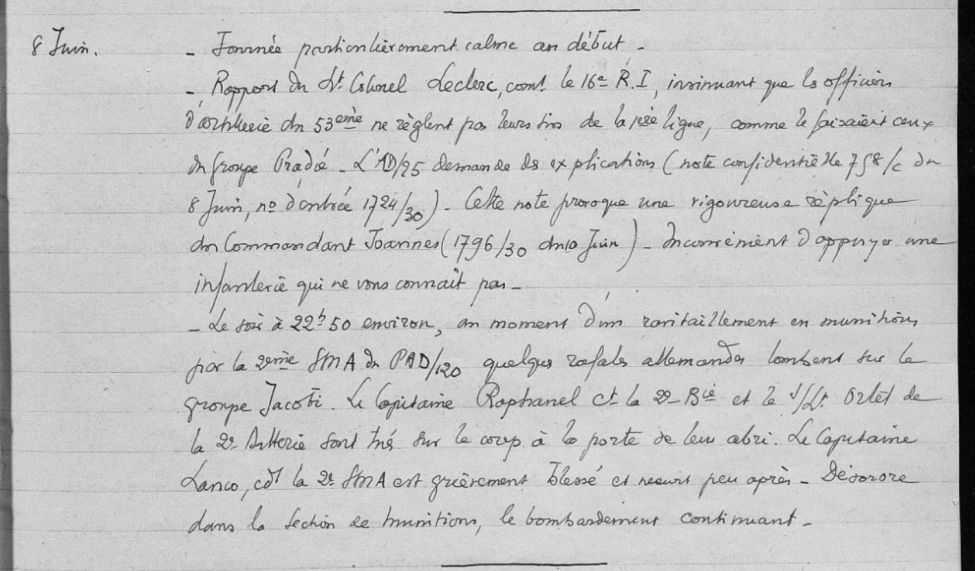 8 Juin. - Journée particulièrement calme au début -
- Rapport du Lt Colonel Leclerc, comt le 16e R.I, insinuant que les officiers
d'artillerie du 53eme ne règlent pas leurs tirs de la 1ère ligne, comme le faisaient ceux
du groupe Pradié - L'AD/25 demande des explications (note confidentielle 758/c du
8 Juin, no d'entrée 1724/30) - Cette note provoque une rigoureuse réplique
du Commandant Joannes (1796/30 du 10 Juin) - Inconvénient d'appuyer une
infanterie qui ne vous connaît pas -
- Le soir à 22h50 environ, au moment d'un ravitaillement en munitions
par la 2eme SMA du PAD/120 quelques rafales allemandes tombent sur le
groupe Jacobi. Le Capitaine Raphanel Ct la 2e Bie et le s/Lt Orlet de
la 2e Batterie sont tués sur le coup à la porte de leur abri. Le Capitaine
Lanco, cdt la 2e SMA est grièvement blessé et meurt peu après - Désordre
dans la Section de munitions, le bombardement continuant -